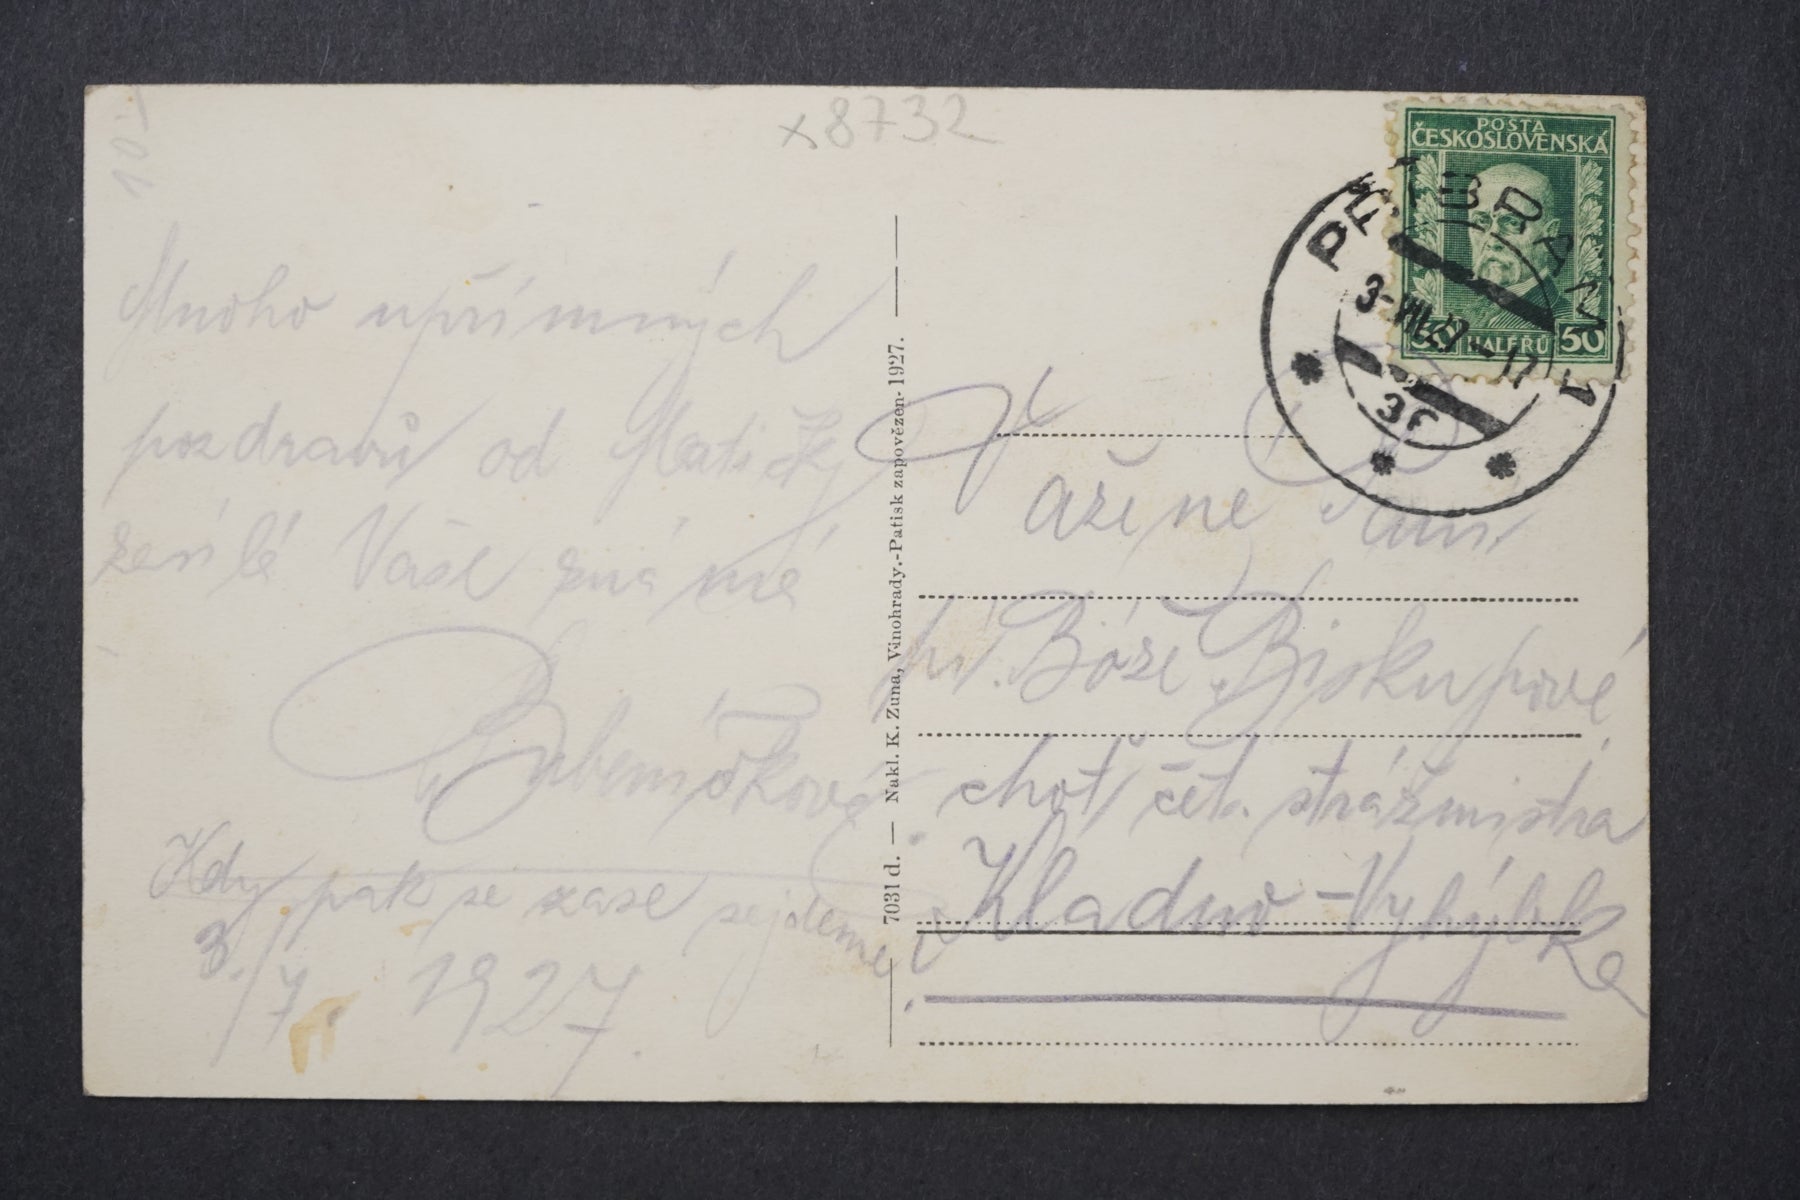 10
x8732
Mnoho upřímných
pozdravů od Mati
zasílá Vaše známá
Kdy pak se zase sejdeme
3./7. 1927.
7031 d. — Nakl. K. Zuna, Vinohrady.-Patisk zapovězen- 1927.
POSTA
ČESKOSLOVENSKÁ
50 HALÉŘŮ 50
PŘÍBRAM 1
3-VII.27-17
3f
Vážené Paní
pí. Bože Biskupové
choť čet. strážmistra
Kladno - Vyhýbka